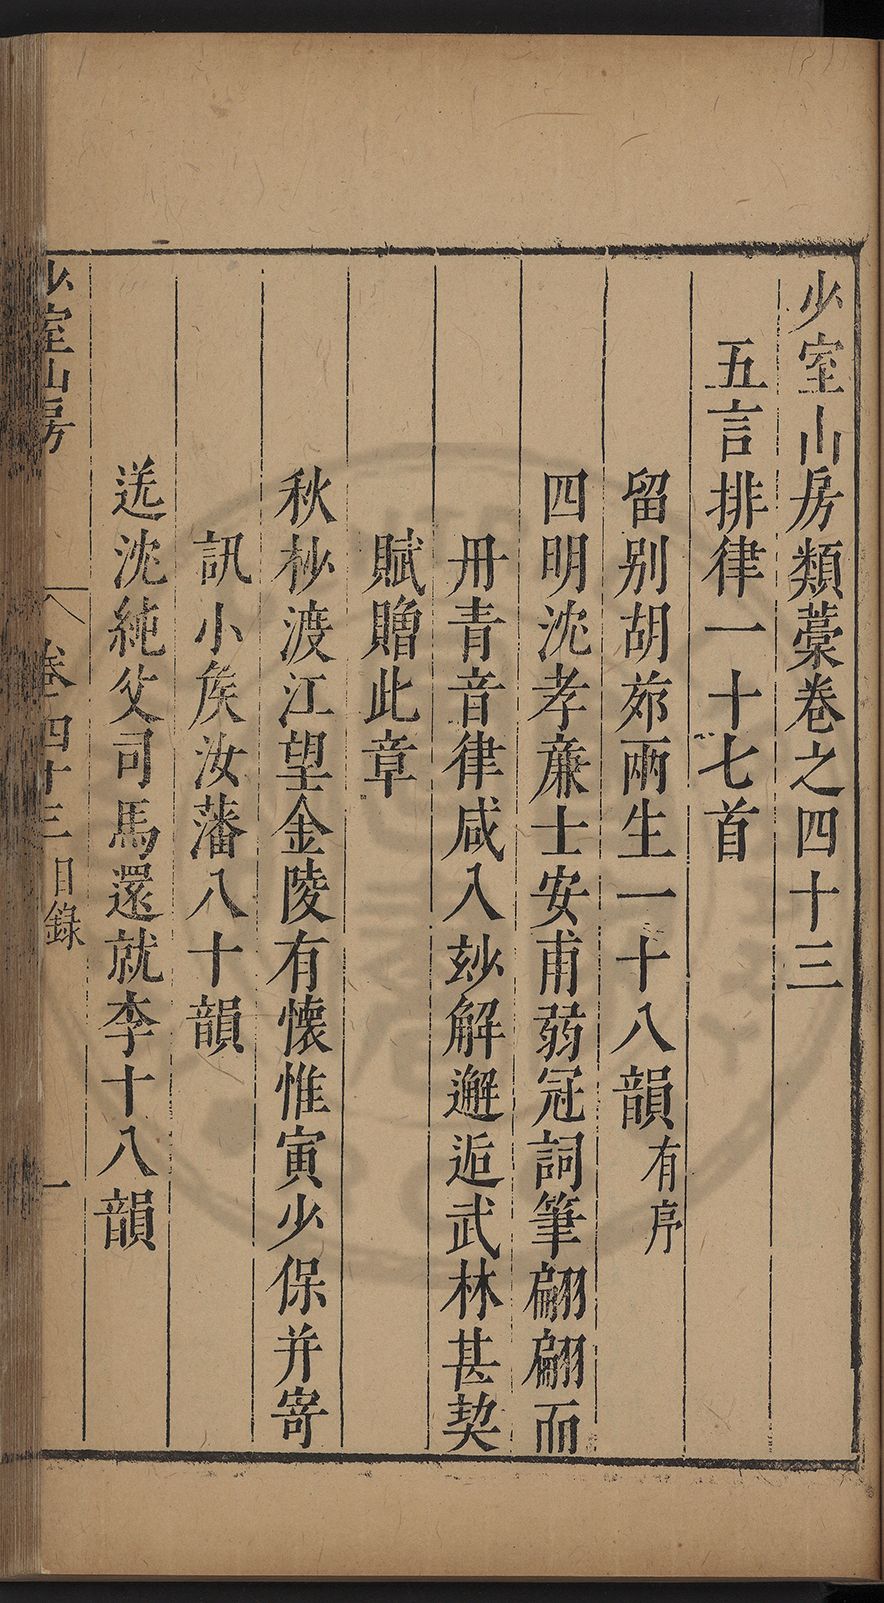 少室山房類藁卷之四十三
五言排律一十七首
留別胡茆兩生一十八韻有序
四明沈孝亷士安甫弱冠詞筆翩翩而
丹青音律咸入玅解邂逅武林甚契
賦贈此章
秋杪渡江望金陵有懷惟寅少保幷寄
訊小矦汝藩八十韻
送沈純父司馬還就李十八韻
少室山房 卷四十三目錄 一